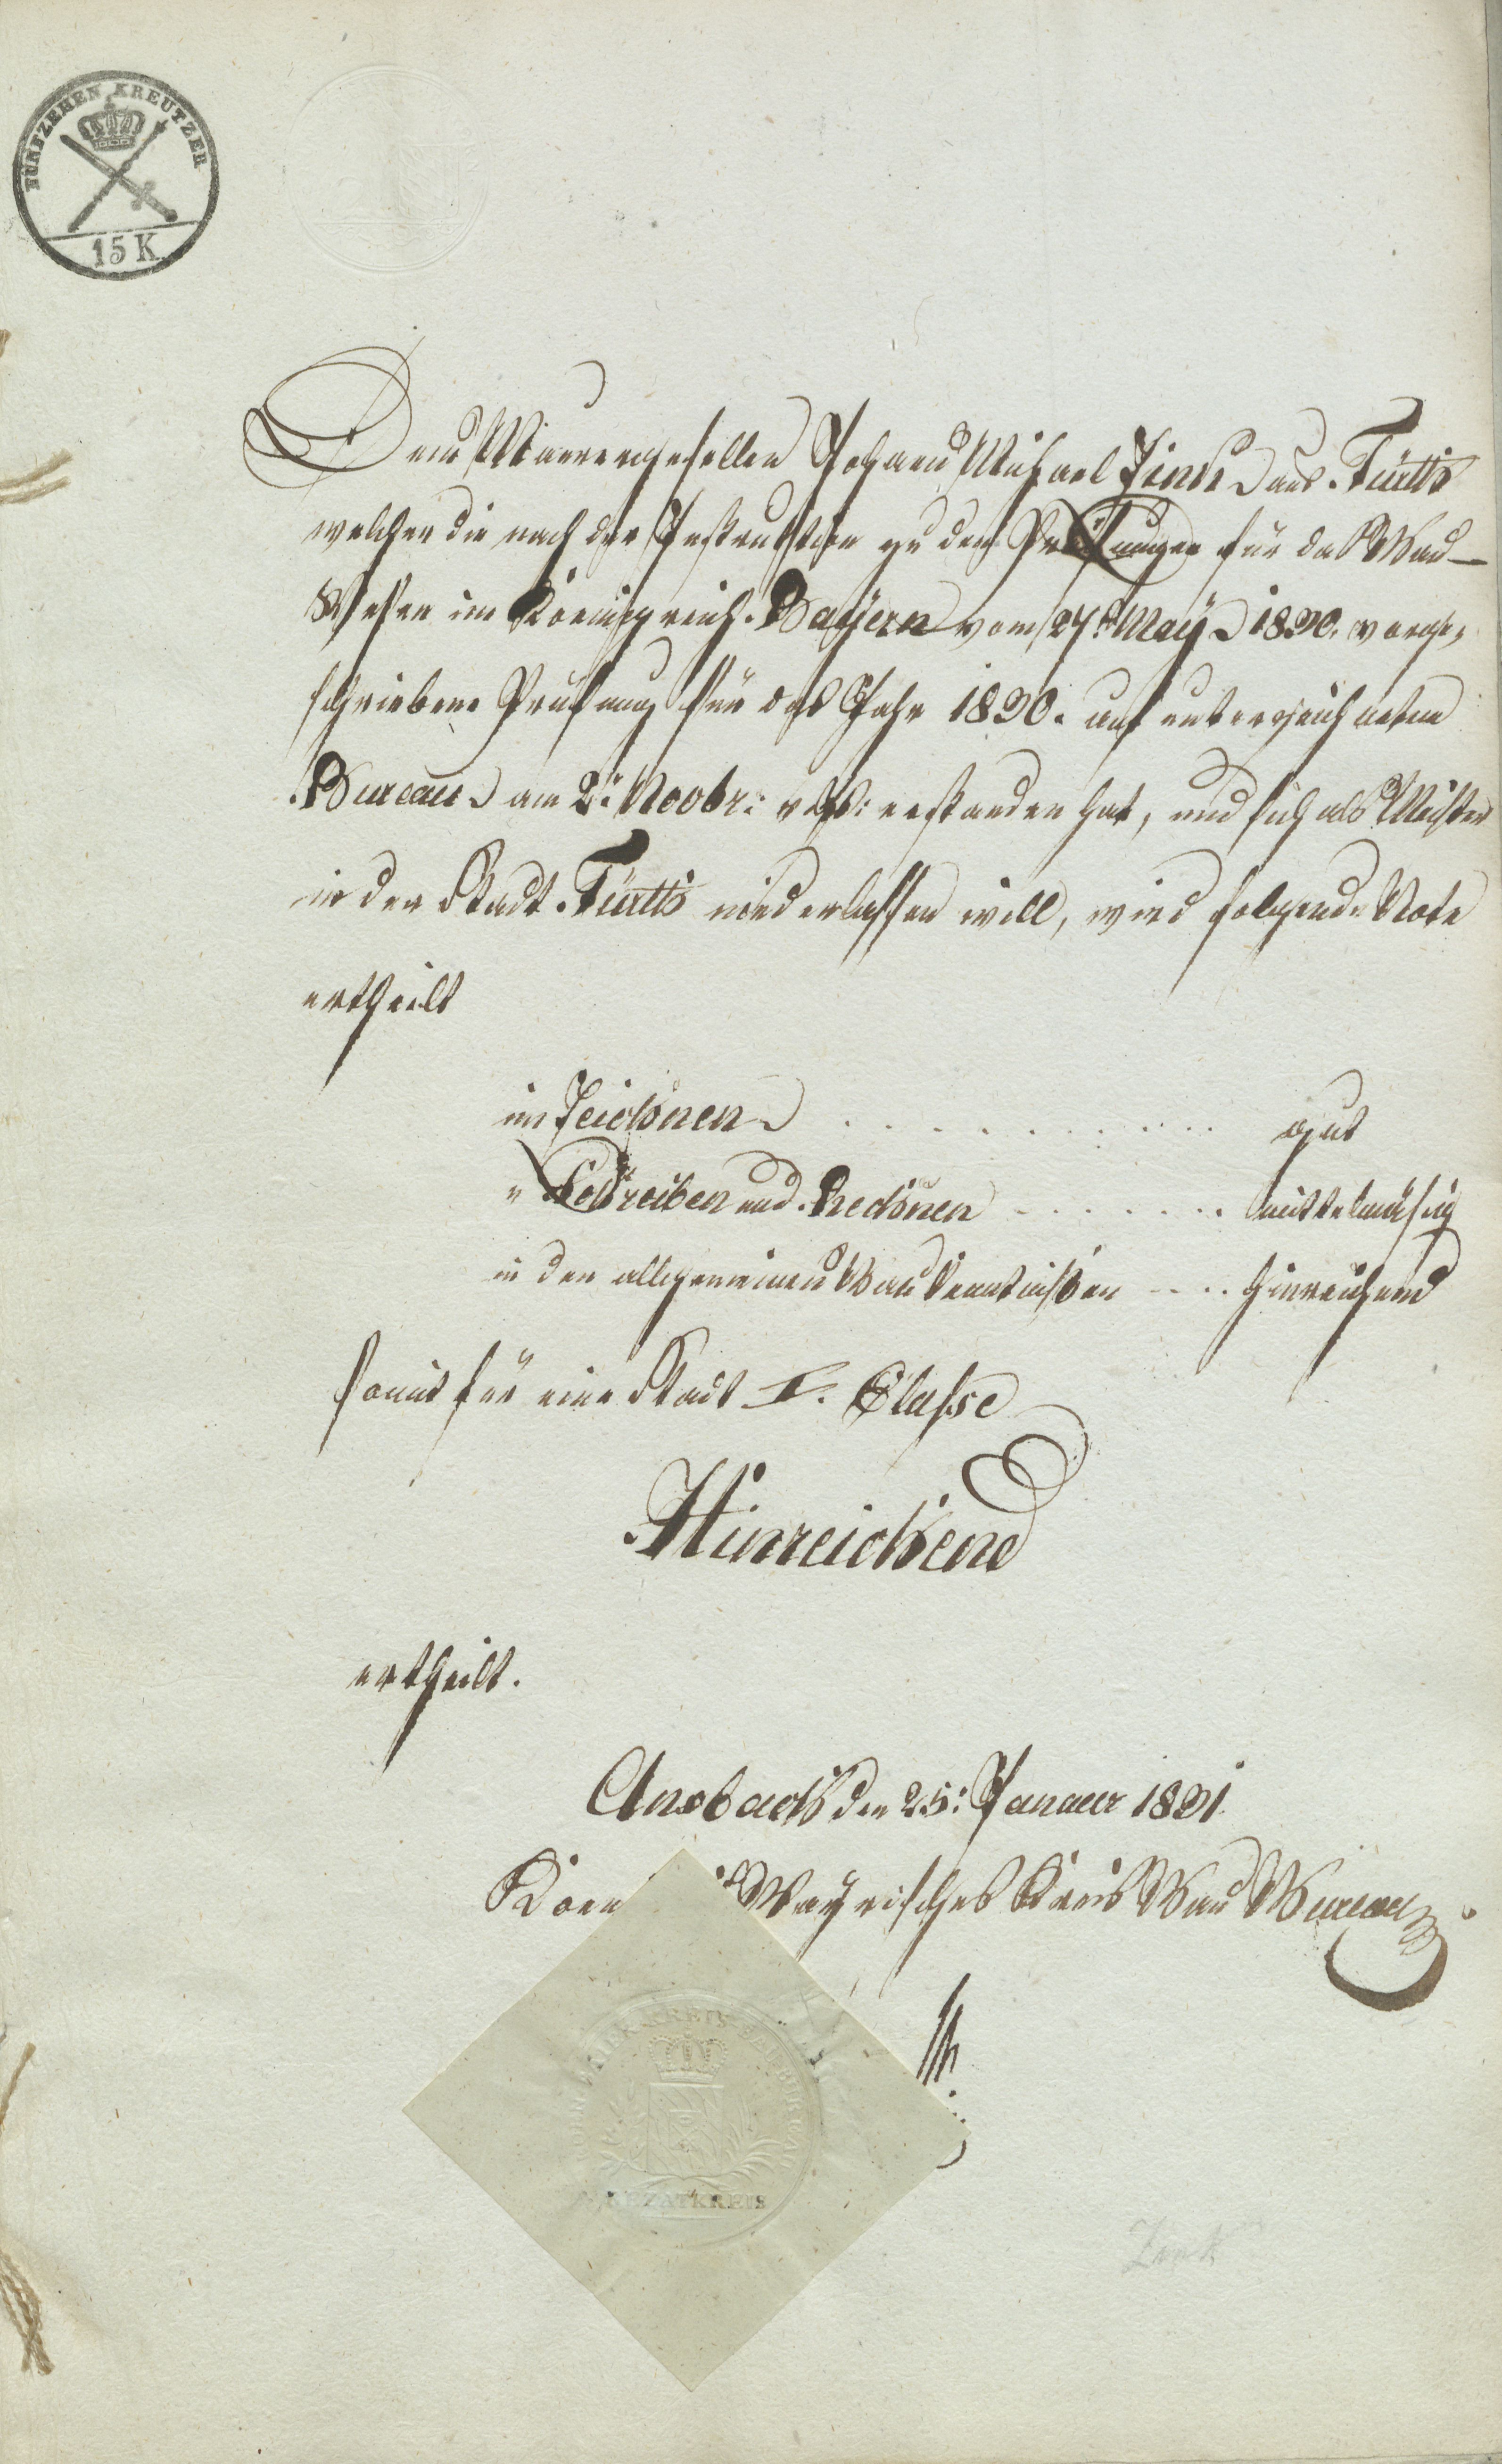 FÜNFZEHEN KREUTZER
15 K
Dem Maurergesellen Johann Michael Zink aus Fürth
welcher die nach der Instruktion zu den Prüfungen für das Bau-
Wesen im Koenigreich Bayern vom 27t May 1830. vorge,
schriebene Prüfung für das Jahr 1830. auf unterzeichnetem
Bureau am 2t Novbr: v. Js: erstanden hat, und sich als Meister
in der Stadt Fürth niederlassen will, wird folgende Note
ertheilt
im Zeichnen . . . . . . . . . . . gut
" Schreiben und Rechnen . . . . . . . mittelmäsig
in den allgemeinen Bau Kenntnißen . . . . hinreichend
somit für eine Stadt I. Classe
Hinreichend
ertheilt.
Ansbach den 25t Januar 1831
Bayrisches Kreis Bau Bureau
REZATKREIS